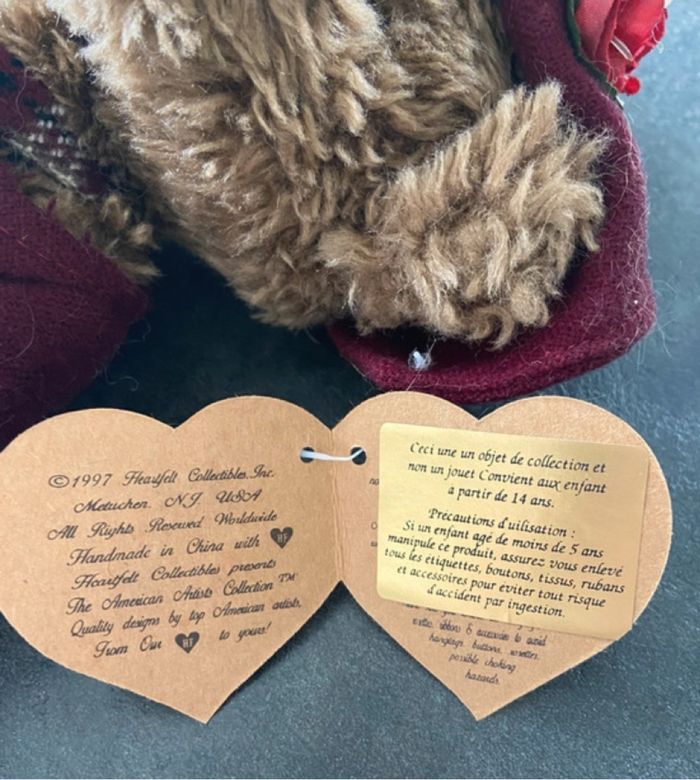 ©1997 Heartfelt Collectibles, Inc.
Metuchen, NJ USA
All Rights Reserved Worldwide
Handmade in China with HF
Heartfelt Collectibles presents
The American Artists Collection™
Quality designs by top American artists,
From Our HF to yours!
Ceci une un objet de collection et
non un jouet Convient aux enfant
a partir de 14 ans.
Précautions d'utilisation :
Si un enfant agé de moins de 5 ans
manipule ce produit, assurez vous enlevé
tous les étiquettes, boutons, tissus, rubans
et accessoires pour eviter tout risque
d'accident par ingestion.
ribbons & accessories to avoid
hangings, buttons, rosettes,
possible choking
hazards.